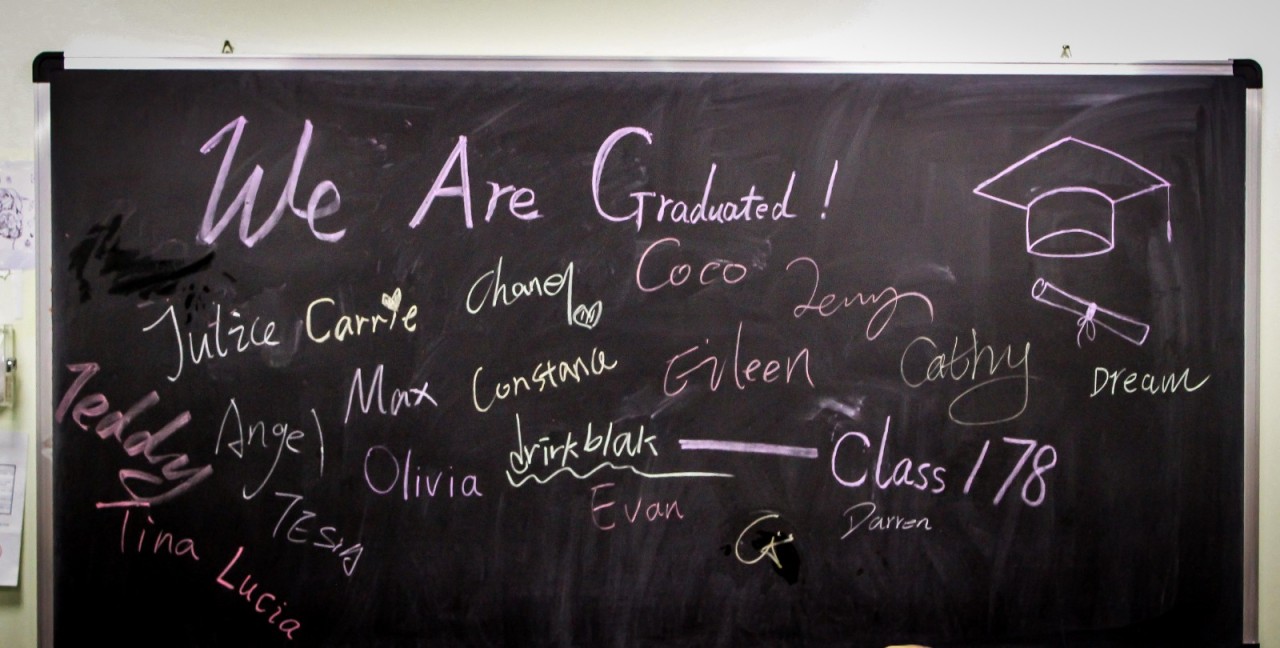 We Are Graduated!
Coco
Chanel
Jerry
Jutice Carrie
Eileen
Cathy
Constance
Max
Dream
Teddy
Angel
Olivia
drirkblak
Class 178
Evan
Darren
Tina
Lucia